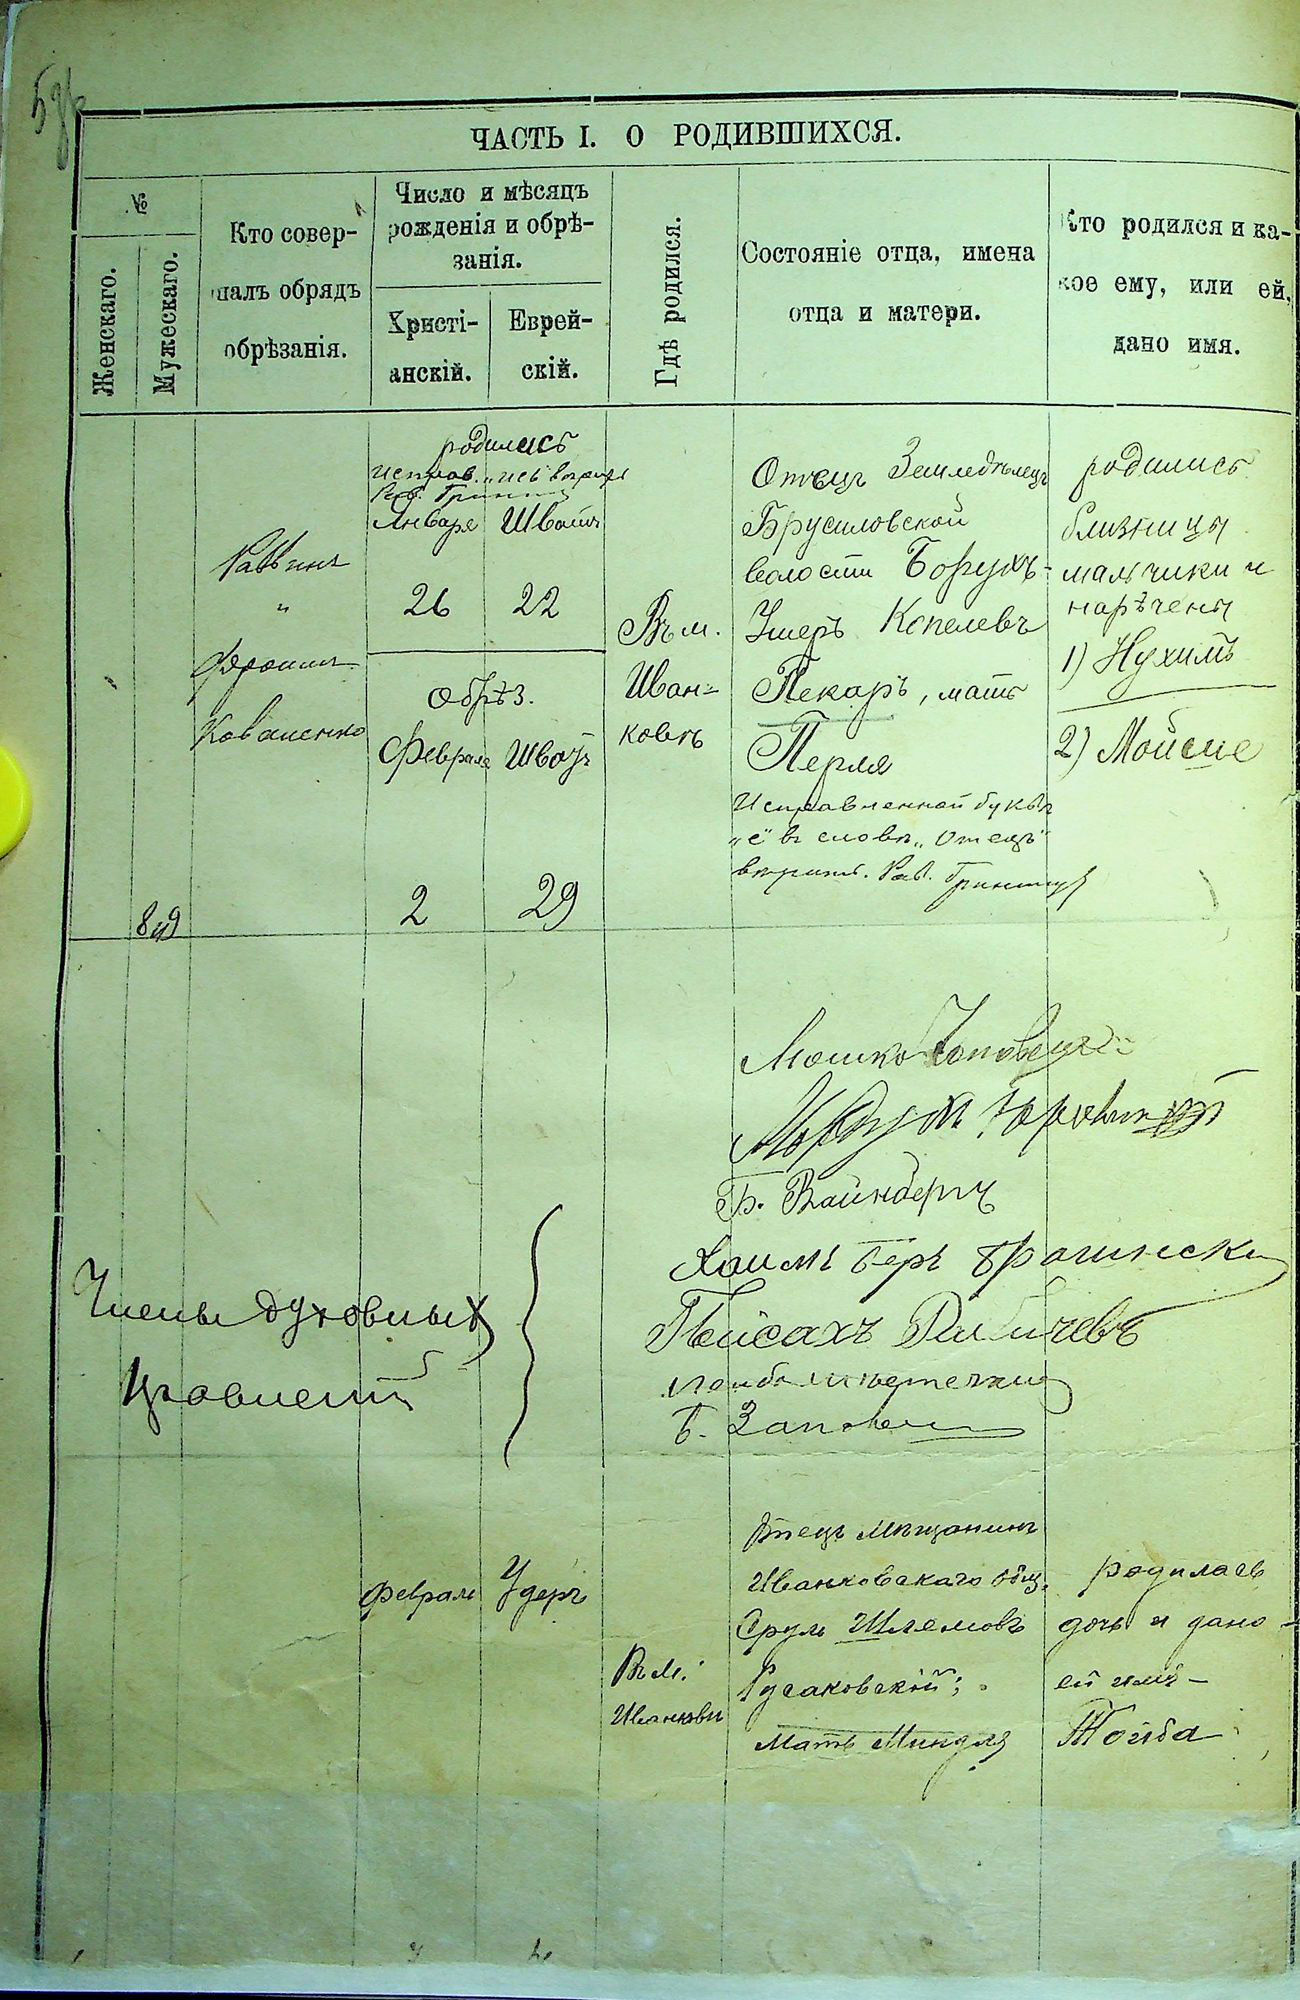 ЧАСТЬ I. О РОДИВШИХСЯ.
№
Женскаго.
Мужескаго.
Кто совер-
шалъ обрядъ
обрѣзанія.
Число и мѣсяцъ
рожденія и обрѣ-
занія.
Христі-
анскій.
Еврей-
скій.
Гдѣ родился.
Состояніе отца, имена
отца и матери.
Кто родился и ка-
кое ему, или ей,
дано имя.
8 и 9
Раввинъ
"
Коваленко
родились
Января Шватъ
26 22
Обрѣз.
Февраля Шватъ
2 29
Въ м.
Иван=
ковѣ
Отецъ Земледѣлецъ
Брусиловской
волости Борухъ-
Ушеръ Копелевъ
Пекаръ, мать
Перля
Исправленной букве
"е" въ словѣ "Отецъ"
вѣрить. Рав.
родились
близницы
мальчики и
наречены
1) Нухимъ
2) Мойсие
Члены духовныхъ
правленій
Мошко
Б. Вайнбергъ
Хаимъ Беръ
Пейсахъ
Б.
Февраля Удеръ
Въ м.
Иванковѣ
Отецъ мѣщанинъ
Иванковскаго общ.
Сруль Шлемовъ
Русаковскій;
Мать Миндля
родилась
дочь и дано
ей имя -
Тойба